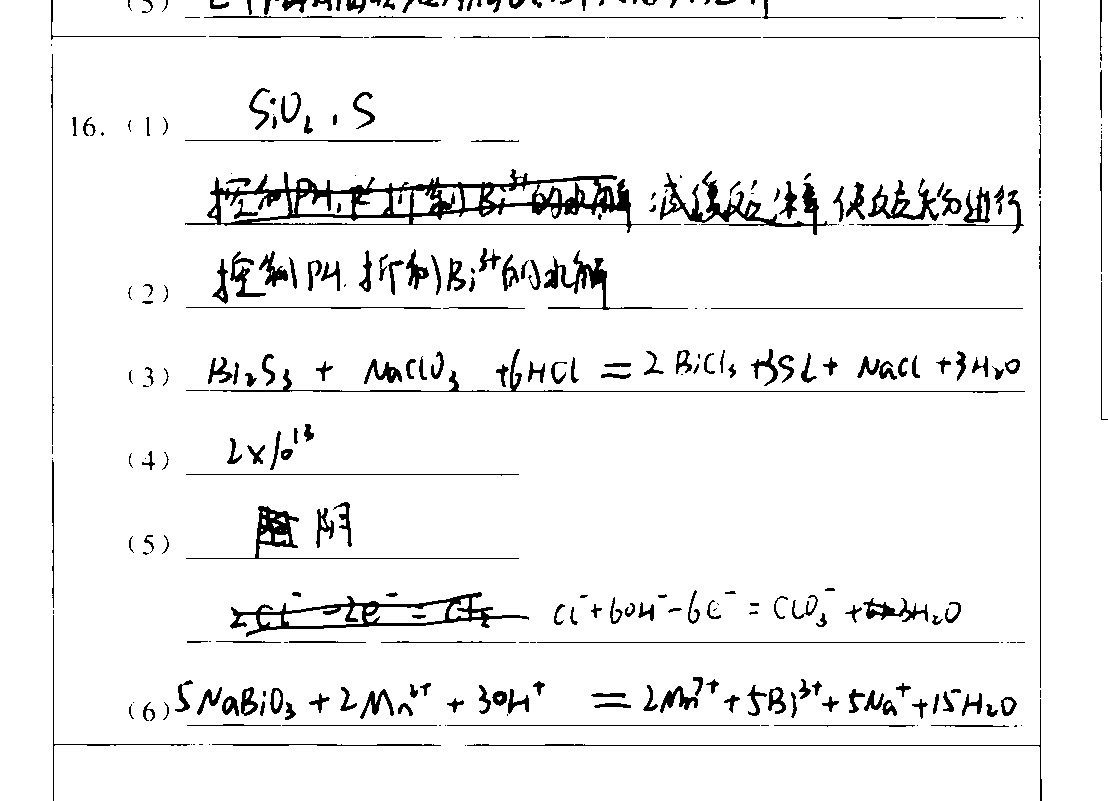 (5)
16. (1) SiO₂、S
减缓反应速率 使反应充分进行
(2) 控制PH.抑制Bi³⁺的水解
(3) Bi₂S₃ + NaClO₃ +6HCl = 2BiCl₃ +3S↓+ NaCl +3H₂O
(4) 2×10¹³
(5) 阴
Cl⁻+6OH⁻-6e⁻=ClO₃⁻+3H₂O
(6) 5NaBiO₃+2Mn²⁺+30H⁺ =2Mn⁷⁺+5Bi³⁺+5Na⁺+15H₂O